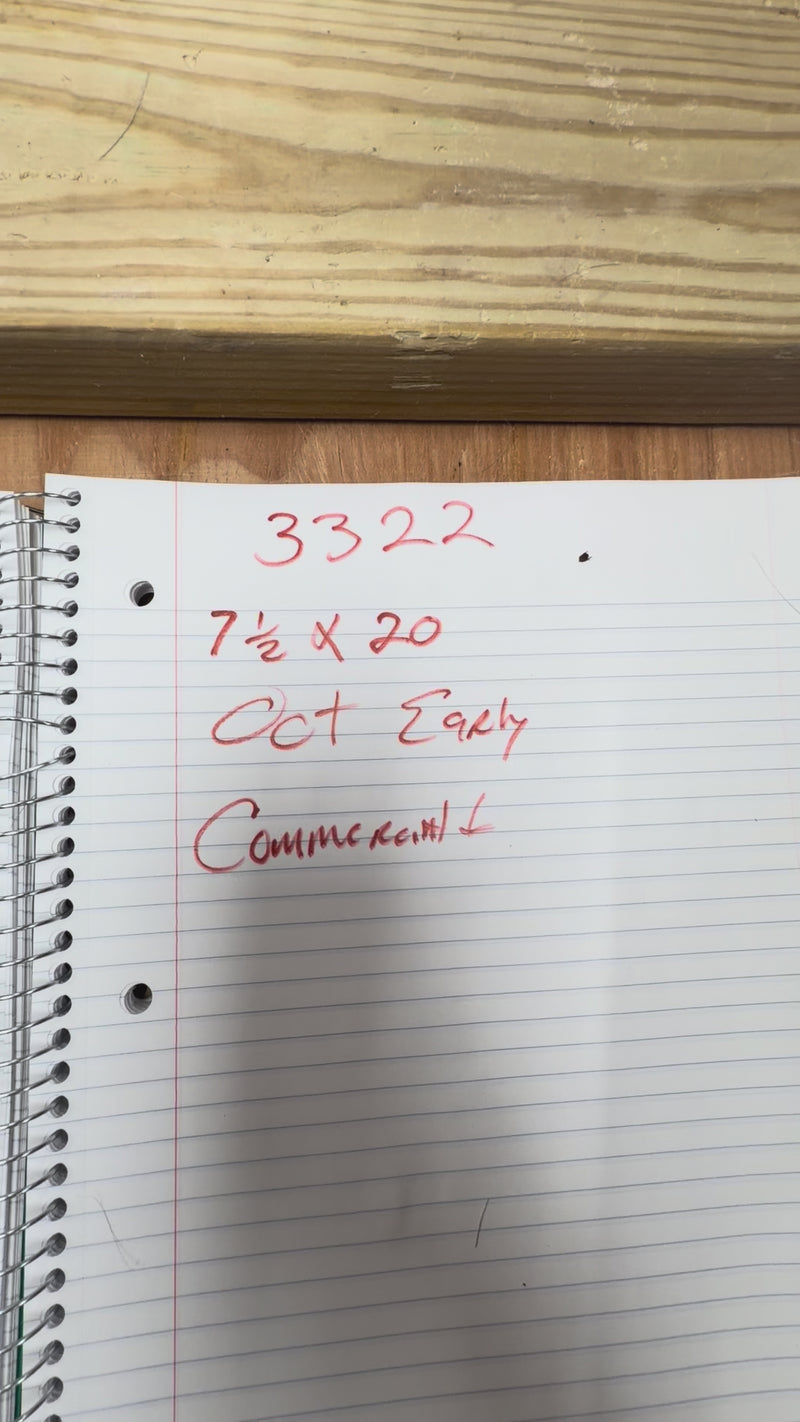 3322
7 ½ x 20
Oct Early
Commercial